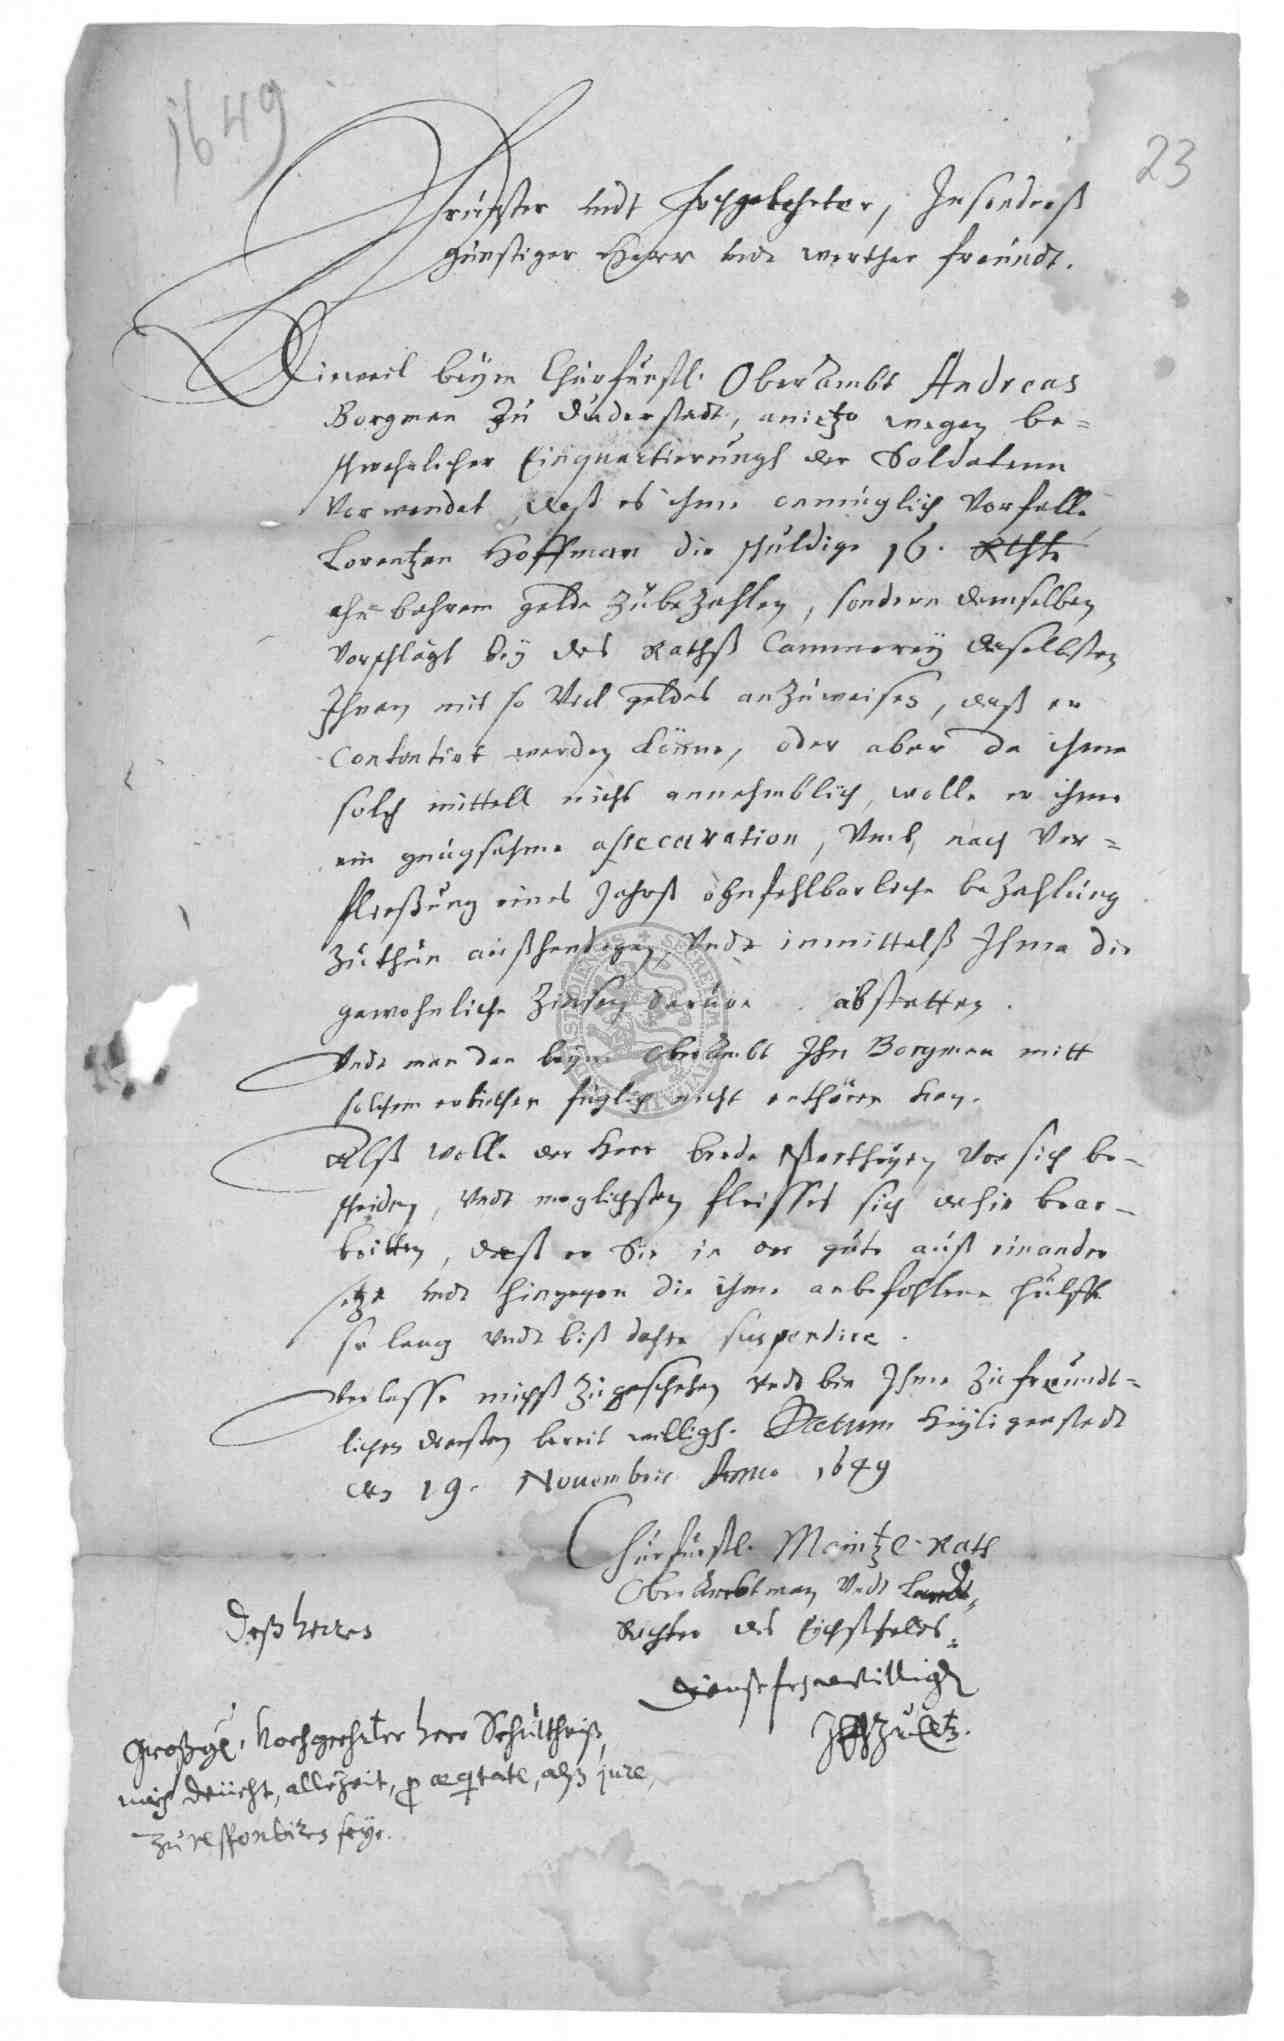 1649
23
Ernvester undt Hochgelehrter, Insonders
günstiger Herr undt werther freündt.
Dieweil beÿm Churfürstl. Oberambt Andreas
Borgman zu Duderstadt, anietzo wegen be=
schwehrlicher Einquartierungh der Soldatenn
Vorwendet, daß es ihme ohnmüglich Vorfalle
Lorentzen Hoffman die schuldige 16. Rthlr
ahn bahrem gelde zubezahlen, sondern demselben
Vorschlägt beÿ des Rathß Cammereÿ daselbsten
Ihnen mit so Viel geldes anzuweisen, daß er
Contentirt werden könne, oder aber da ihme
solch mittell nicht annehmblich, wolle er ihme
ein gnugsahme assecuration, Umb nach Ver=
fließung eines Jahrß ohnfehlbarliche bezahlung
zuthun außhendigen, Undt inmittelß Ihme die
gewohnliche Zinsen darvon abstatten.
Undt man den beÿm OberAmbt Ihn Borgman mitt
solchem erbiethen füglich nicht enthören kan.
Alß wolle der Herr beede Partheyen Vor sich be=
scheiden, Undt moglichsten fleisses sich dahin bear=
beitten, daß er Sie in der güte auß einander
setze undt hingegen die ihme anbefohlene hülffe
so lang undt biß dahin suspendire.
Verlasse michß zugeschehen Undt bin Ihme zu freundt=
lichen diensten bereit willigh. Datum Heÿligenstadt
den 19. Novembris Anno 1649
Churfürstl. Maintz. Rath
OberAmbtman Undt Landt=
Richter des Eichßfeldes.
Deß herren
Dienstfreywilliger
Großg. hochgeehrter herr Schultheiß,
mich deücht, allezeit, p æqtate, alß jure,
zu respondiren seye.